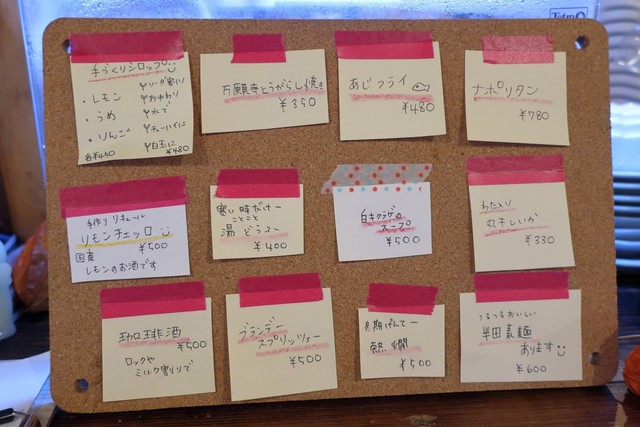 手づくりシロップ
・レモン
・うめ
・りんご
ソーダ割り
お湯わり
水で
チューハイに
白玉に
各¥450
¥480
万願寺とうがらし焼き
¥350
あじフライ
¥480
ナポリタン
¥780
手作りリキュール
リモンチェッロ
¥500
国産
レモンのお酒です
寒い時だけー
ことこと
湯どうふー
¥400
白キクラゲの
スープ
¥500
わた入り
丸干しいか
¥330
珈琲酒
¥500
ロックや
ミルク割りで
ブランデー
スプリッツァー
¥500
熱燗
¥500
つるつるおいしい
半田素麺
あります
¥600